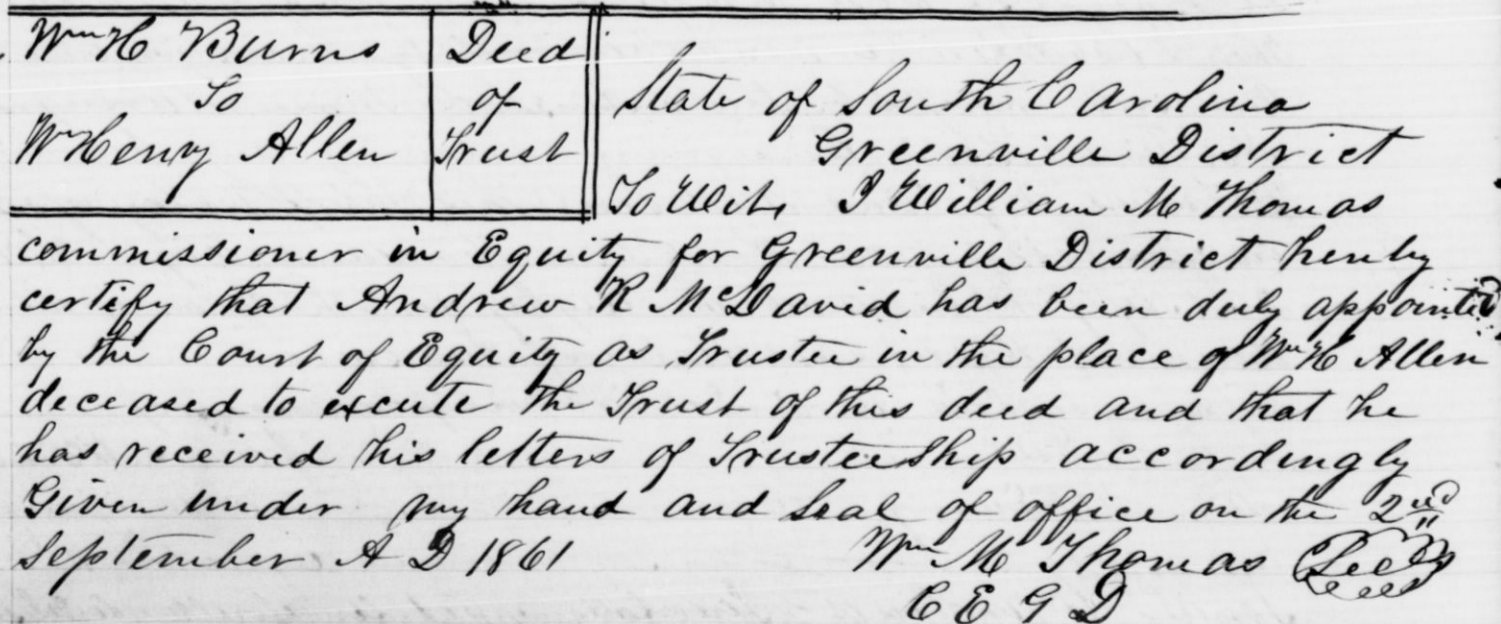 Wm H Burns
To
Wm Henry Allen
Deed
of
Trust
State of South Carolina
Greenville District
To Wit, I William M Thomas
commissioner in Equity for Greenville District hereby
certify that Andrew R McDavid has been duly appointed
by the Court of Equity as Trustee in the place of Wm H Allen
deceased to excute the Trust of this deed and that he
has received his letters of Trusteeship accordingly
Given under my hand and Seal of office on the 2nd
September A D 1861
Wm M Thomas
C E G D